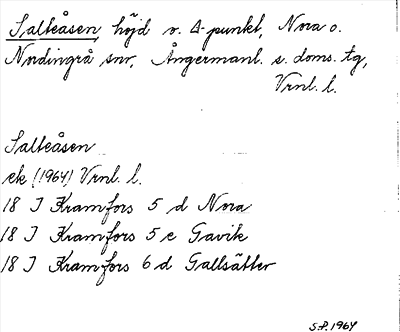 Salteåsen, höjd o. Δ-punkt, Nora o.
Nordingrå snr, Ångermanl. s. doms. tg,
Vrnl. l.
Salteåsen
ek (1964) Vrnl. l.
18 I Kramfors 5 d Nora
18 I Kramfors 5 e Gavik
18 I Kramfors 6 d Gallsätter
S.P. 1964